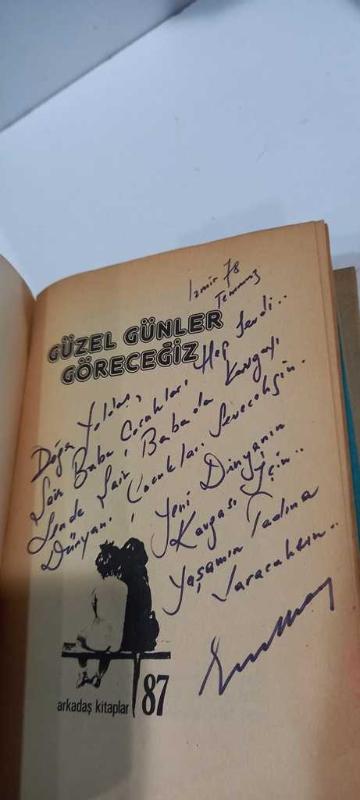 İzmir 78
Temmuz
GÜZEL GÜNLER
GÖRECEĞİZ
Doğa Yoldaş,
Şair Baba Çocukları Hep Sevdi..
Sende Şair Baba'da Kavgayı
Dünyanı Çocukları Seveceksin.
Yeni Dünyanın
Kavgası İçin..
Yaşamın Tadına
Varacaksın..
arkadaş kitaplar
87